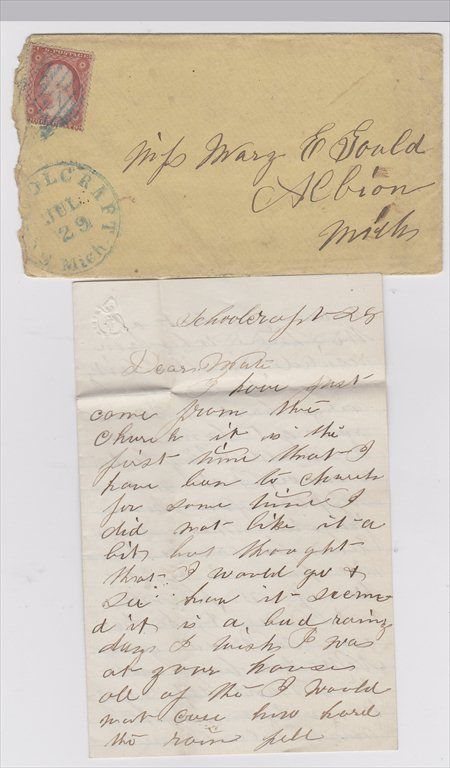 U.S. POSTAGE
OLCRAFT
JUL
29
Mich
Miss Mary E Gould
Albion
Mich
Schoolcraft 28
Dear Mate
I have just
come from the
Church it is the
first time that I
have ben to church
for some time I
did not like it a
bit but thought
that I would go &
see how it seeme
d it is a bad rainy
day I wish I was
at your house
all of the I would
not care how hard
the rain fell